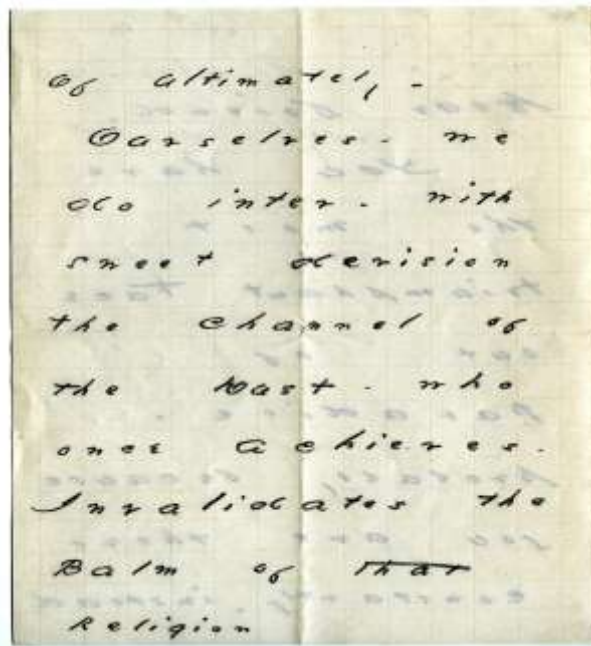 Of Ultimately -
Ourselves - we
do inter - with
sweet derision
the channel of
the Dust - who
once Achieves -
Invalidates the
Balm of that
Religion